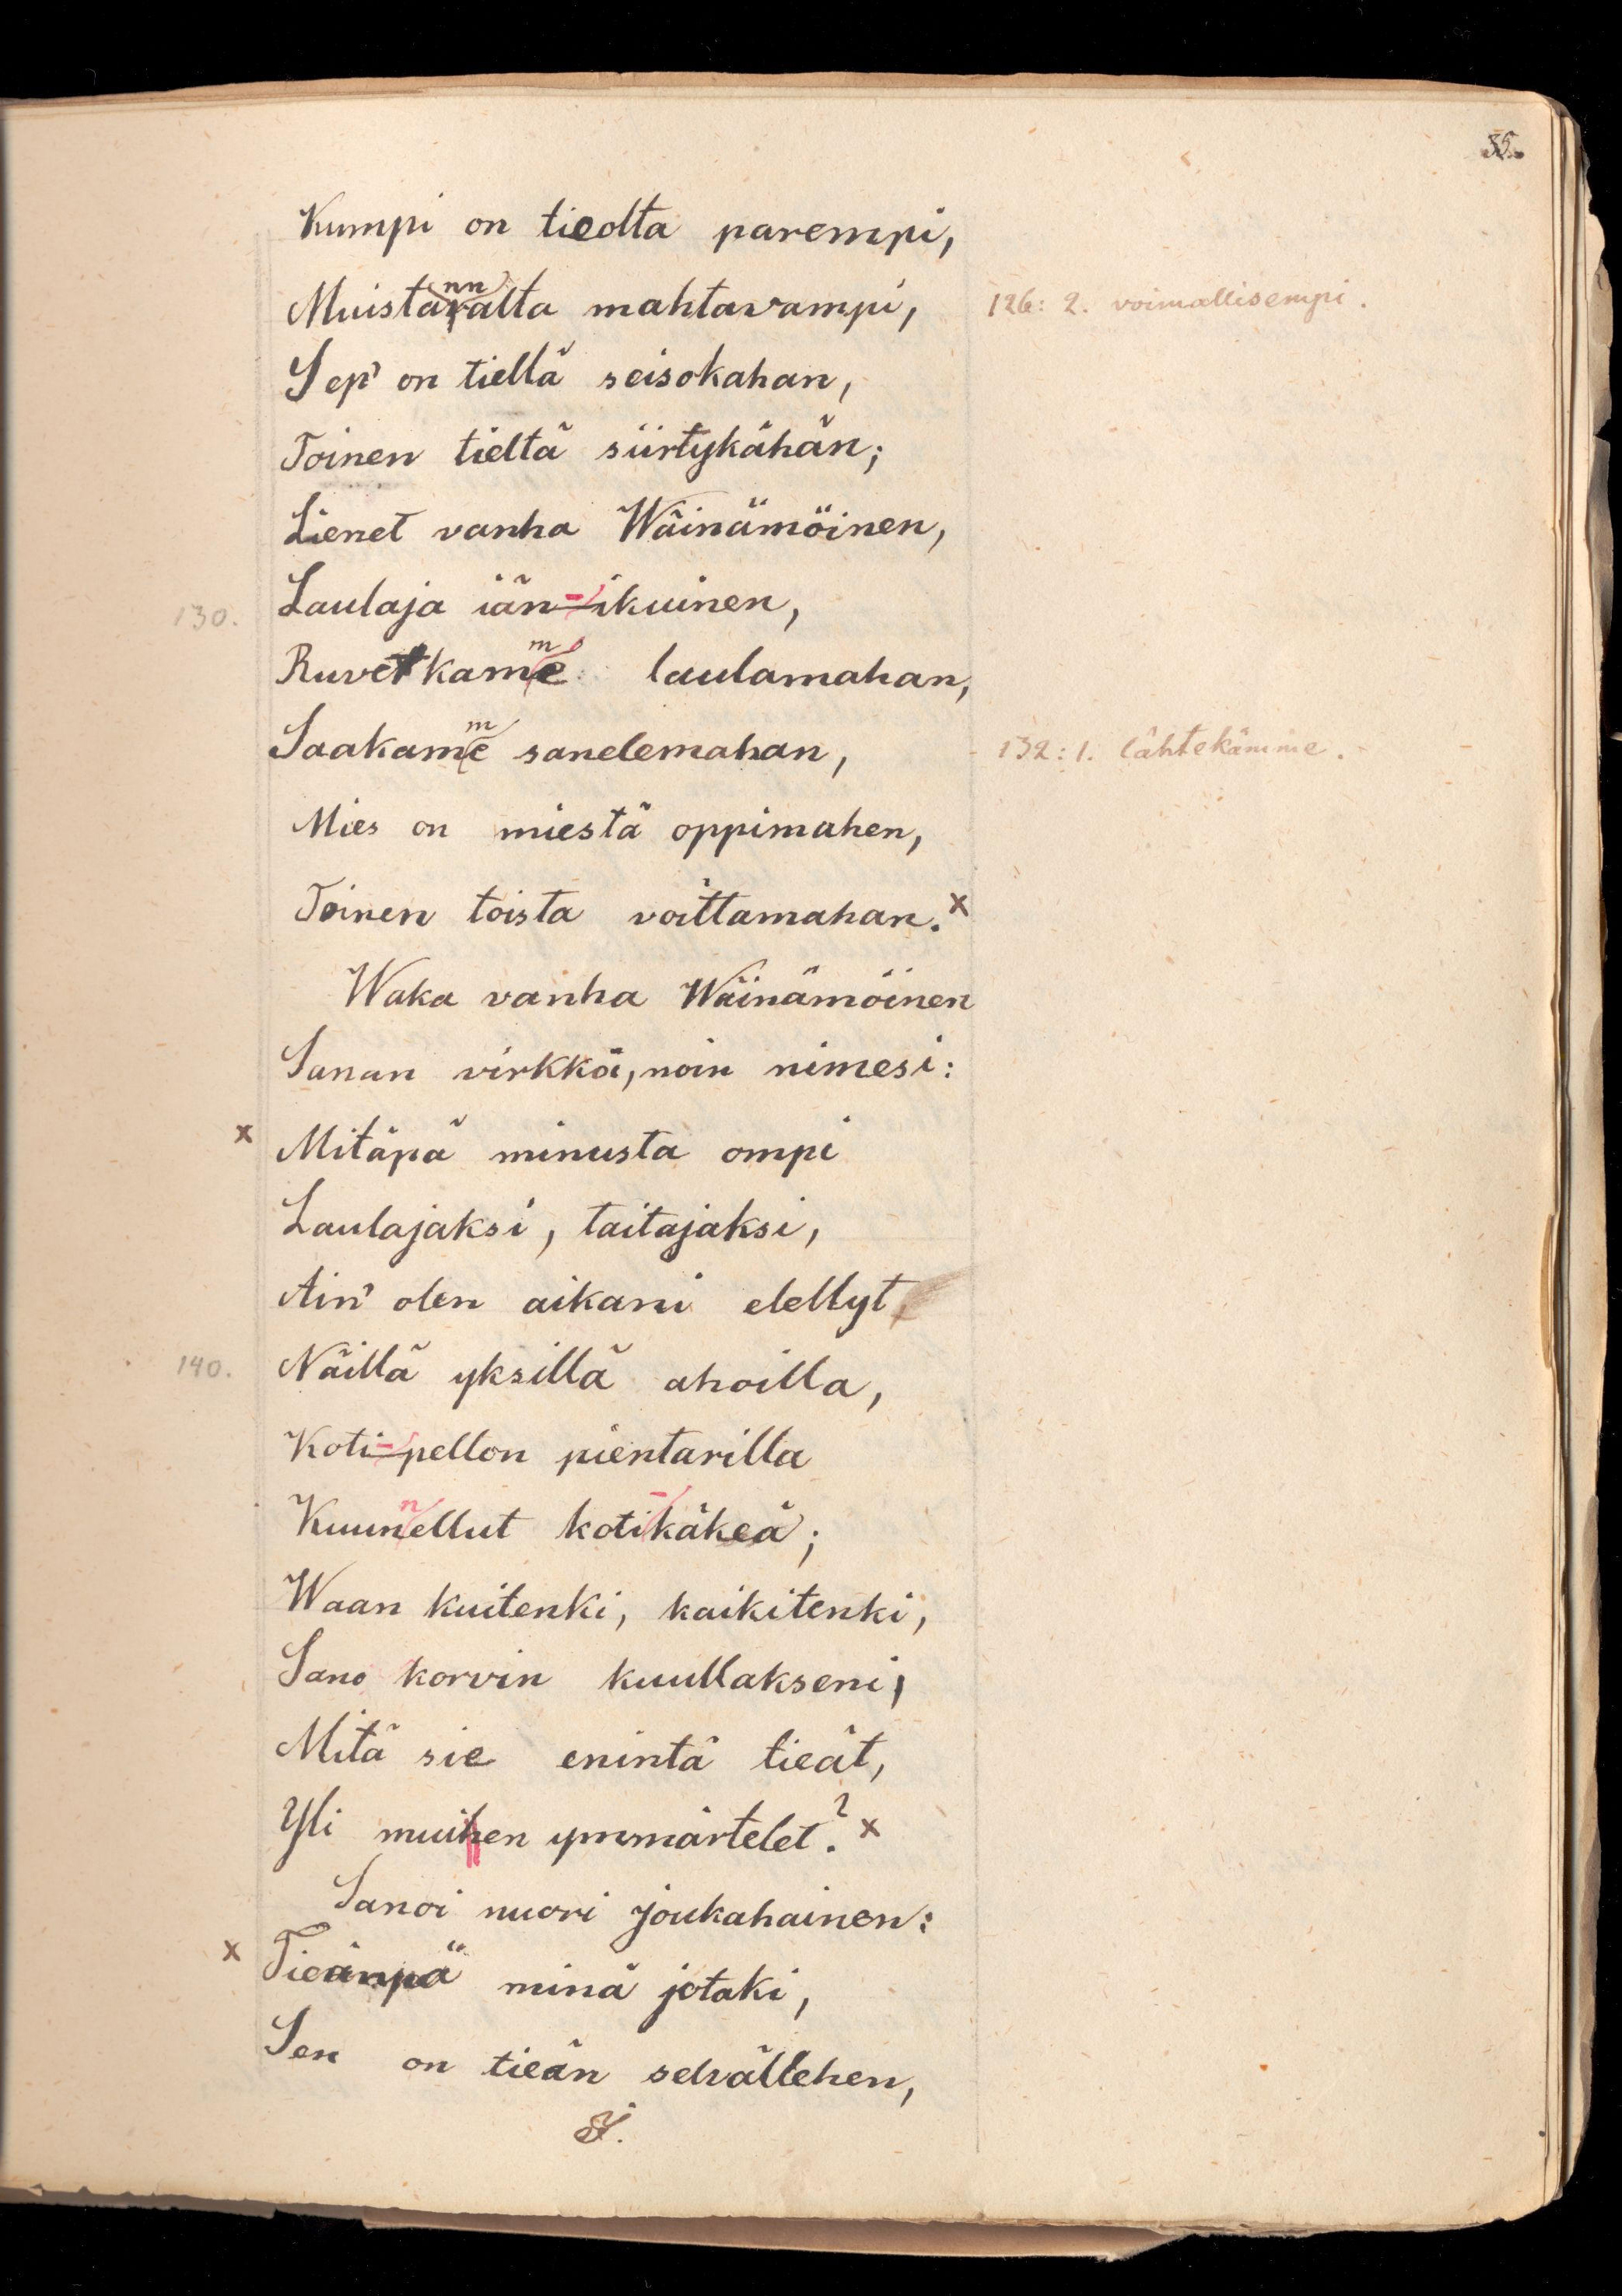 35.
Kumpi on tieolta parempi,
Muistannalta mahtavampi, 126: 2. voimallisempi.
Sep' on tiellä seisokahan,
Toinen tieltä siirtykähän;
Lienet vanha Wäinämöinen,
130. Laulaja iän-ikuinen,
Ruvetkamme laulamahan,
Saakamme sanelemahan, 132: 1. lähtekämme.
Mies on miestä oppimahen,
Toinen toista voittamahan. x
Waka vanha Wäinämöinen
Sanan virkkoi, noin nimesi:
x Mitäpä minusta ompi
Laulajaksi, taitajaksi,
Ain' olen aikani elellyt
140. Näillä yksillä ahoilla,
Koti-pellon pientarilla
Kuunnellut kotikäkeä;
Waan kuitenki, kaikitenki,
Sano korvin kuullakseni,
Mitä sie enintä tieät,
Yli muihen ymmärtelet? x
Sanoi nuori Joukahainen:
x Tieänpä minä jotaki,
Sen on tieän selvällehen,